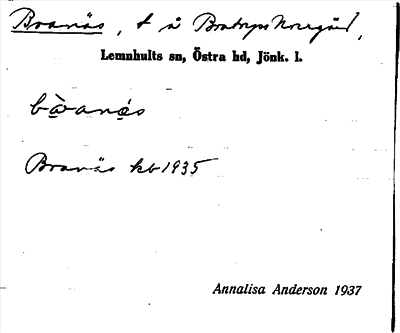 Branäs, t å Bratryps Norrgård,
Lemnhults sn, Östra hd, Jönk. l.
bra̱na̱s
Branäs kb 1935
Annalisa Anderson 1937